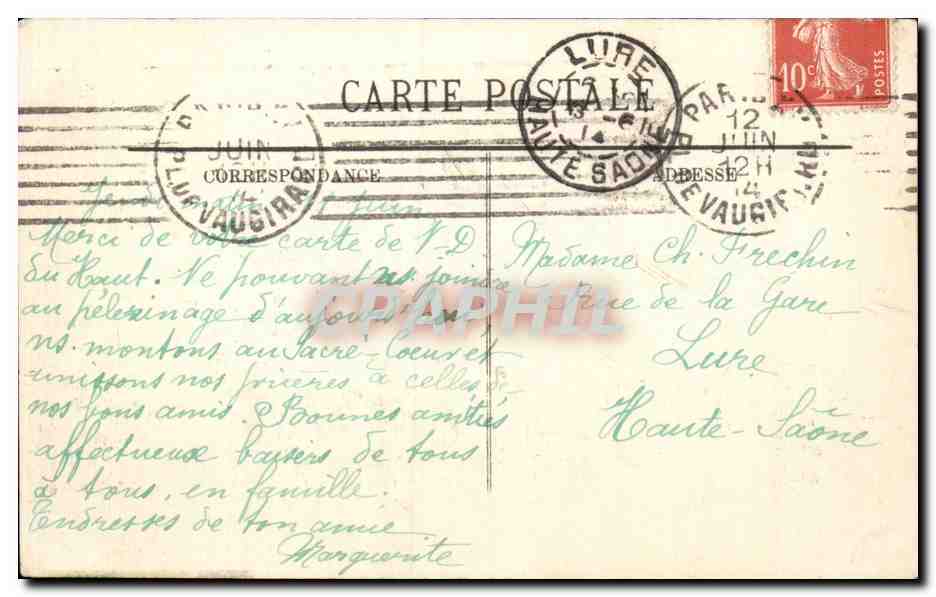 CARTE POSTALE
LURE
13 -6
14
HAUTE SAÔNE
10c
POSTES
PARIS
12
JUIN
12H
14
JUIN
VAUGIRA
CORRESPONDANCE
ADRESSE
juin
Merci de votre carte de N-D
du Haut. Ne pouvant ns joindre
au pèlerinage d'aujourd'hui,
ns. montons au Sacré-Coeur et
unissons nos prières à celles de
nos bons amis. Bonnes amitiés
affectueux baisers de tous
à tous, en famille.
Tendresses de ton amie
Marguerite
Madame Ch. Frechin
Rue de la Gare
Lure
Haute-Saône
CPAPHIL